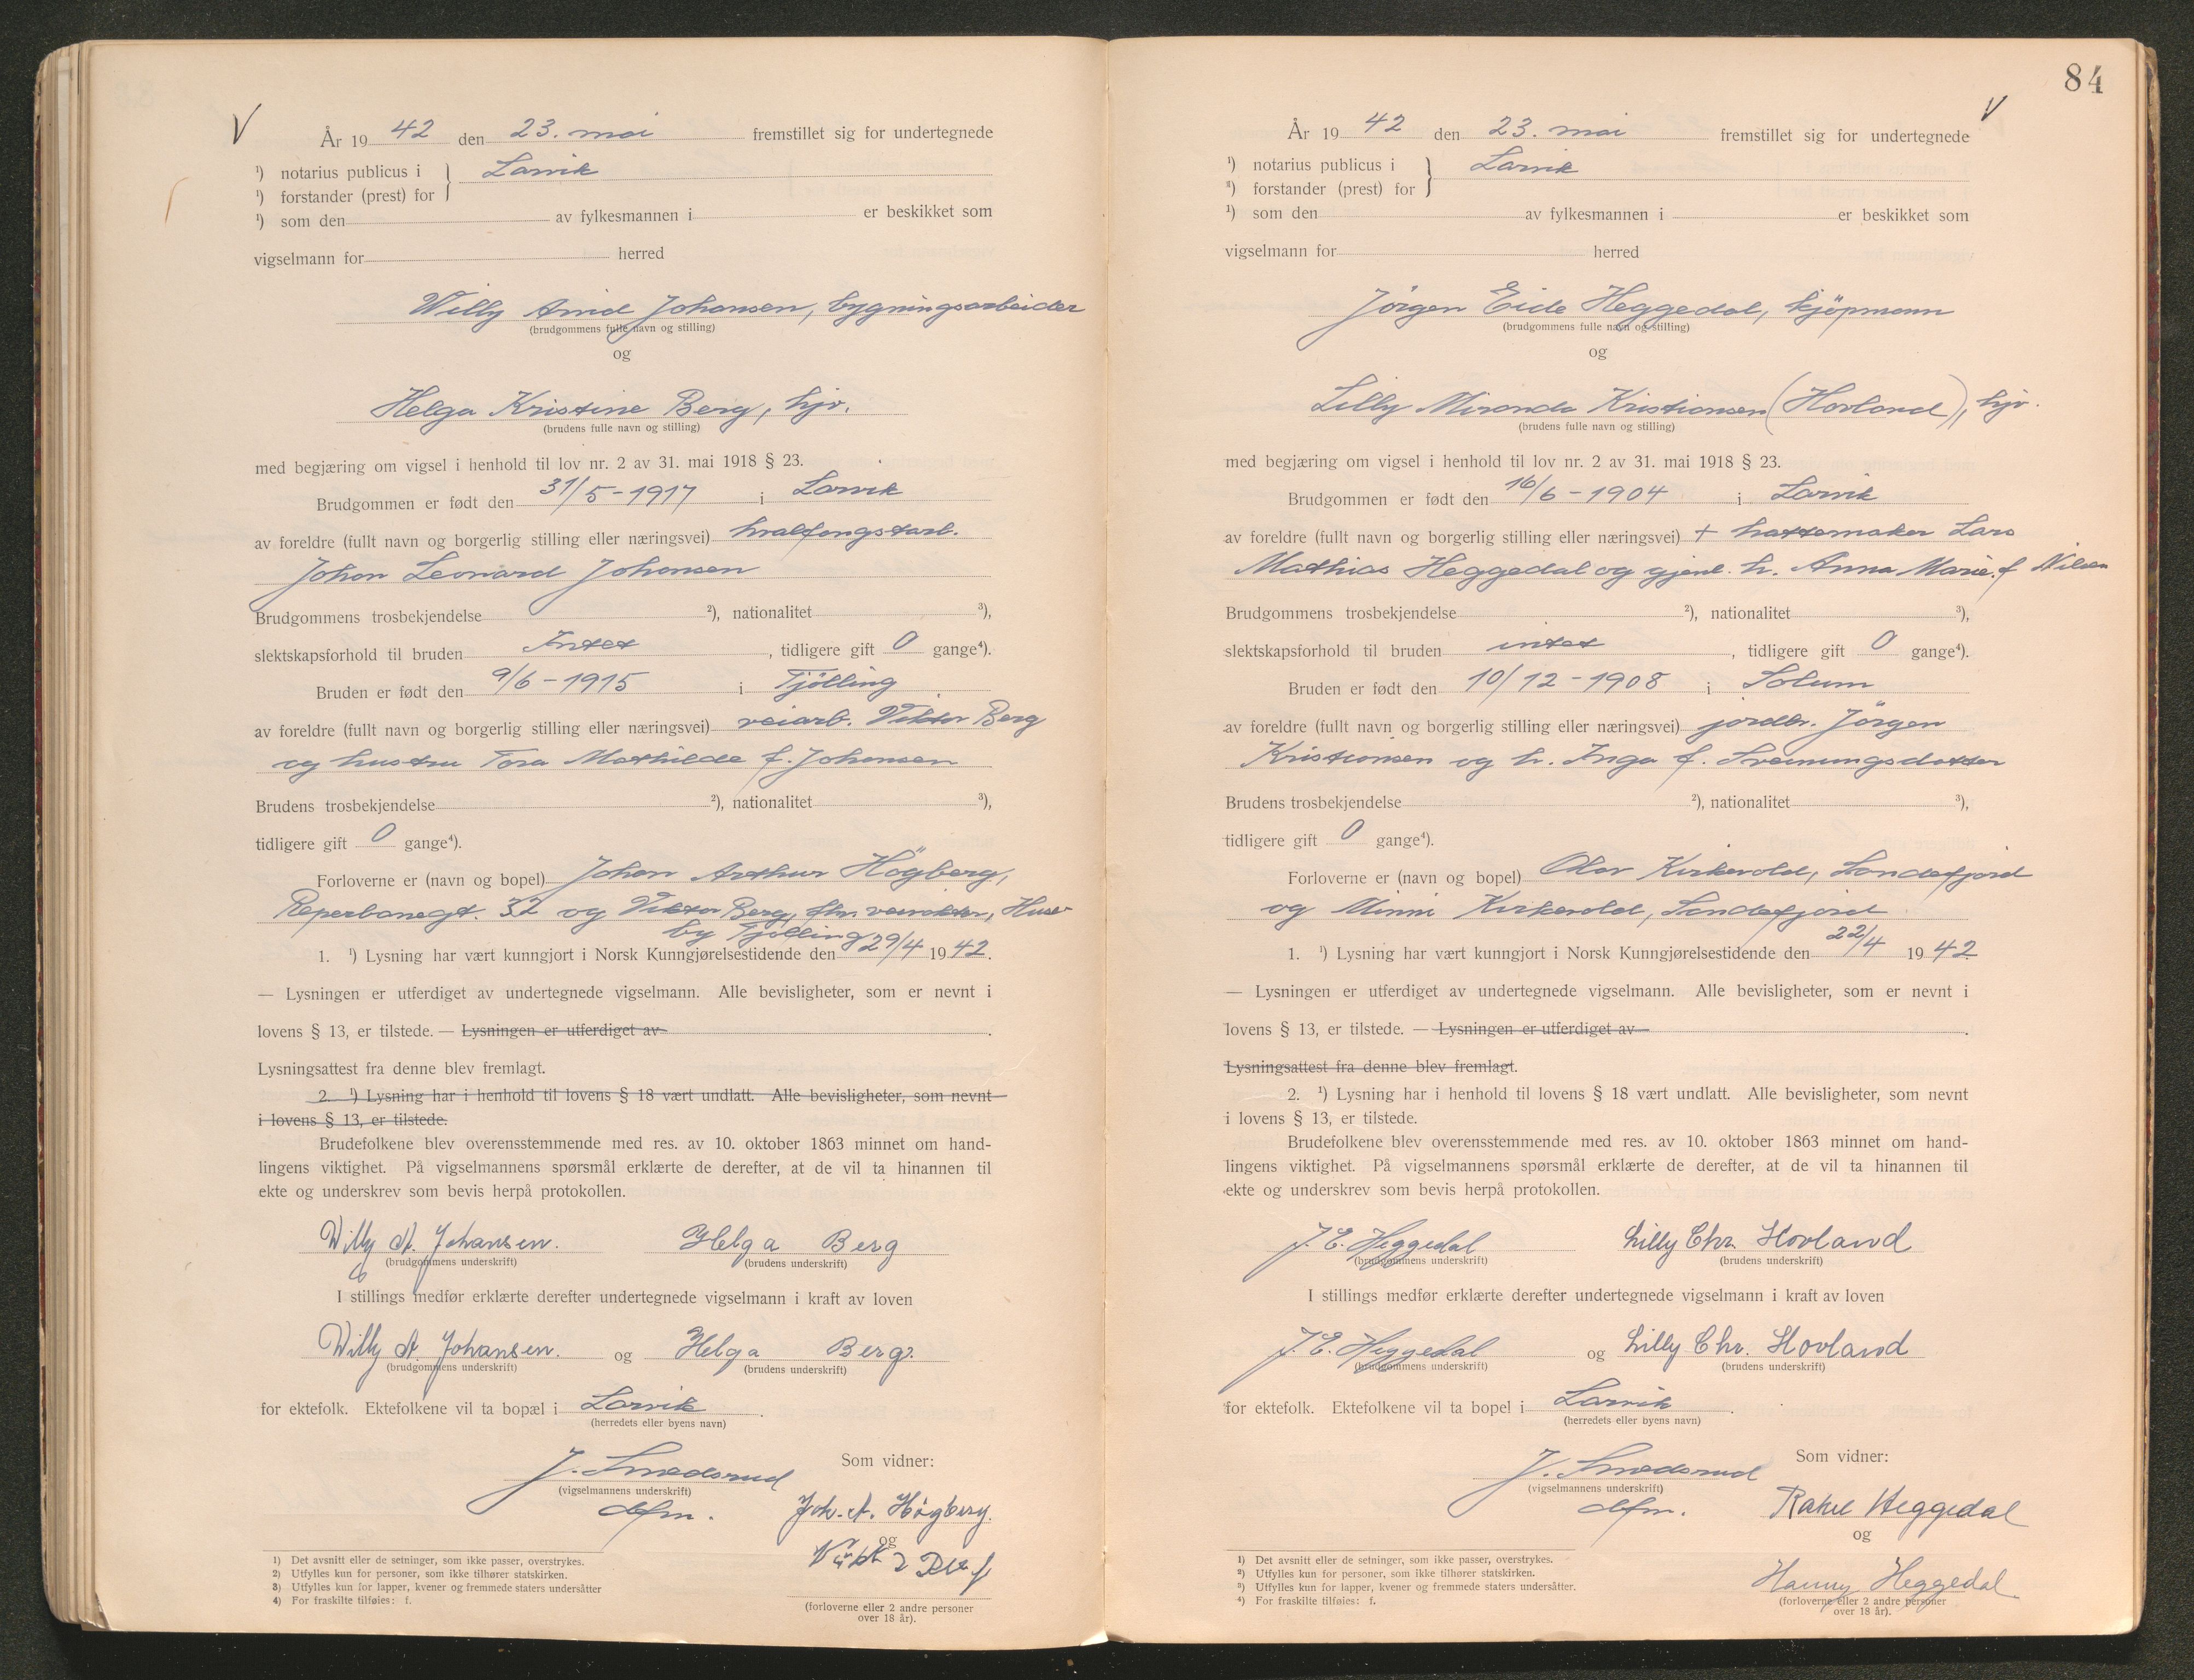 V
År 1942 den 23. mai fremstillet sig for undertegnede
¹) notarius publicus i } Larvik
¹) forstander (prest) for
¹) som den av fylkesmannen i er beskikket som
vigselmann for herred
Willy Arvid Johansen, bygningsarbeider
(brudgommens fulle navn og stilling)
og
Helga Kristine Berg, hjv.
(brudens fulle navn og stilling)
med begjæring om vigsel i henhold til lov nr. 2 av 31. mai 1918 § 23.
Brudgommen er født den 31/5-1917 i Larvik
av foreldre (fullt navn og borgerlig stilling eller næringsvei) hvalfangstarb.
Johan Leonard Johansen
Brudgommens trosbekjendelse ²), nationalitet ³),
slektskapsforhold til bruden Intet, tidligere gift 0 gange⁴).
Bruden er født den 9/6-1915 i Tjölling
av foreldre (fullt navn og borgerlig stilling eller næringsvei) veiarb. Viktor Berg
og hustru Tora Mathilde f. Johansen
Brudens trosbekjendelse ²), nationalitet ³),
tidligere gift 0 gange⁴).
Forloverne er (navn og bopel) Johan Arthur Högberg,
Reperbanegt. 32 og Viktor Berg, Huse-
by Tjölling
1. ¹) Lysning har vært kunngjort i Norsk Kunngjørelsestidende den 29/4 1942.
— Lysningen er utferdiget av undertegnede vigselmann. Alle bevisligheter, som er nevnt i
lovens § 13, er tilstede. — Lysningen er utferdiget av
Lysningsattest fra denne blev fremlagt.
2. ¹) Lysning har i henhold til lovens § 18 vært undlatt. Alle bevisligheter, som nevnt
i lovens § 13, er tilstede.
Brudefolkene blev overensstemmende med res. av 10. oktober 1863 minnet om hand-
lingens viktighet. På vigselmannens spørsmål erklærte de derefter, at de vil ta hinannen til
ekte og underskrev som bevis herpå protokollen.
Willy A. Johansen. Helga Berg
(brudgommens underskrift) (brudens underskrift)
I stillings medfør erklærte derefter undertegnede vigselmann i kraft av loven
Willy A. Johansen. og Helga Berg.
(brudgommens underskrift) (brudens underskrift)
for ektefolk. Ektefolkene vil ta bopæl i Larvik.
(herredets eller byens navn)
Som vidner:
J. Smedsrud
(vigselmannens underskrift)
dfm.
Joh. A. Högberg.
og
(forloverne eller 2 andre personer
over 18 år).
1) Det avsnitt eller de setninger, som ikke passer, overstrykes.
2) Utfylles kun for personer, som ikke tilhører statskirken.
3) Utfylles kun for lapper, kvener og fremmede staters undersåtter
4) For fraskilte tilføies: f.
84
V
År 1942 den 23. mai fremstillet sig for undertegnede
¹) notarius publicus i } Larvik
¹) forstander (prest) for
¹) som den av fylkesmannen i er beskikket som
vigselmann for herred
Jörgen Eide Heggedal, kjöpmann
(brudgommens fulle navn og stilling)
og
Lilly Miranda Kristiansen (Hovland), hjv.
(brudens fulle navn og stilling)
med begjæring om vigsel i henhold til lov nr. 2 av 31. mai 1918 § 23.
Brudgommen er født den 16/6-1904 i Larvik
av foreldre (fullt navn og borgerlig stilling eller næringsvei) + hattemaker Lars
Mathias Heggedal og gjenl. h. Anna Marie f Nilsen
Brudgommens trosbekjendelse ²), nationalitet ³),
slektskapsforhold til bruden intet, tidligere gift 0 gange⁴).
Bruden er født den 10/12-1908 i Solum
av foreldre (fullt navn og borgerlig stilling eller næringsvei) jordbr. Jörgen
Kristiansen og h. Inga f. Sveinungsdatter
Brudens trosbekjendelse ²), nationalitet ³),
tidligere gift 0 gange⁴).
Forloverne er (navn og bopel) Olav Kirkevold, Sandefjord
og Minni Kirkevold, Sandefjord
1. ¹) Lysning har vært kunngjort i Norsk Kunngjørelsestidende den 22/4 1942
— Lysningen er utferdiget av undertegnede vigselmann. Alle bevisligheter, som er nevnt i
lovens § 13, er tilstede. — Lysningen er utferdiget av
Lysningsattest fra denne blev fremlagt.
2. ¹) Lysning har i henhold til lovens § 18 vært undlatt. Alle bevisligheter, som nevnt
i lovens § 13, er tilstede.
Brudefolkene blev overensstemmende med res. av 10. oktober 1863 minnet om hand-
lingens viktighet. På vigselmannens spørsmål erklærte de derefter, at de vil ta hinannen til
ekte og underskrev som bevis herpå protokollen.
J. E. Heggedal Lilly Chr. Hovland
(brudgommens underskrift) (brudens underskrift)
I stillings medfør erklærte derefter undertegnede vigselmann i kraft av loven
J. E. Heggedal og Lilly Chr. Hovland
(brudgommens underskrift) (brudens underskrift)
for ektefolk. Ektefolkene vil ta bopel i Larvik.
(herredets eller byens navn)
Som vidner:
J. Smedsrud
(vigselmannens underskrift)
dfm.
Rakel Heggedal
og
Hanny Heggedal
(forloverne eller 2 andre personer
over 18 år).
1) Det avsnitt eller de setninger, som ikke passer, overstrykes.
2) Utfylles kun for personer, som ikke tilhører statskirken.
3) Utfylles kun for lapper, kvener og fremmede staters undersåtter.
4) For fraskilte tilføies: f.